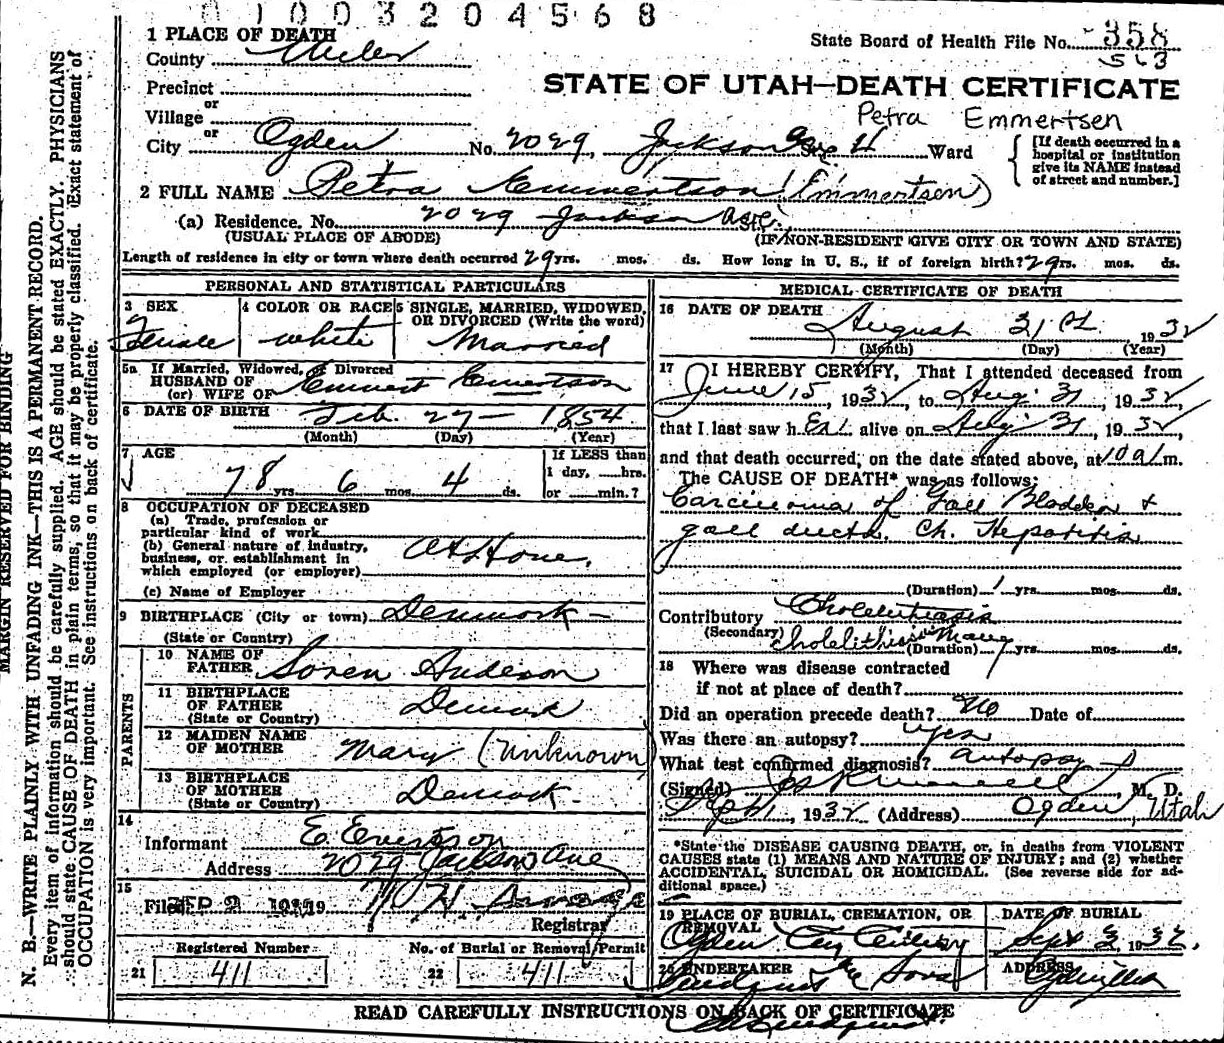 01003204568
1 PLACE OF DEATH
County Weber
State Board of Health File No. 358
563
STATE OF UTAH—DEATH CERTIFICATE
Precinct
or
Village
or
Petra Emmertsen
City Ogden No. 2029, Jackson Ave 4 Ward
[If death occurred in a hospital or institution give its NAME instead of street and number.]
2 FULL NAME Petra Emmertson (Emmertson)
(a) Residence. No. 2029 Jackson Ave.
(USUAL PLACE OF ABODE) (IF NON-RESIDENT GIVE CITY OR TOWN AND STATE)
Length of residence in city or town where death occurred 29 yrs. mos. ds. How long in U. S., if of foreign birth? 29 yrs. mos. ds.
PERSONAL AND STATISTICAL PARTICULARS
3 SEX 4 COLOR OR RACE 5 SINGLE, MARRIED, WIDOWED, OR DIVORCED (Write the word)
Female White Married
5a If Married, Widowed, or Divorced
HUSBAND OF
(or) WIFE OF Emmert Emertson
6 DATE OF BIRTH Feb. 27 — 1854
(Month) (Day) (Year)
7 AGE If LESS than
1 day, hrs.
78 yrs. 6 mos. 4 ds. or min.?
8 OCCUPATION OF DECEASED
(a) Trade, profession or
particular kind of work
(b) General nature of industry,
business, or establishment in
which employed (or employer)
At Home.
(c) Name of Employer
9 BIRTHPLACE (City or town) Denmark —
(State or Country)
PARENTS
10 NAME OF
FATHER Soren Anderson
11 BIRTHPLACE
OF FATHER
(State or Country) Denmark
12 MAIDEN NAME
OF MOTHER Mary (Unknown)
13 BIRTHPLACE
OF MOTHER
(State or Country) Denmark
14
Informant E Evertson
Address 2029 Jackson Ave
15
Filed SEP 2 19
Registrar
Registered Number No. of Burial or Removal Permit
21 411 22 411
MEDICAL CERTIFICATE OF DEATH
16 DATE OF DEATH
August 31st 1932
(Month) (Day) (Year)
17 I HEREBY CERTIFY, That I attended deceased from
June 15, 1932, to Aug. 31, 1932,
that I last saw her alive on Aug. 31, 1932,
and that death occurred, on the date stated above, at 10 a. m.
The CAUSE OF DEATH* was as follows:
Carcinoma of Gall Bladder +
gall ducts. Ch. Hepatitis
(Duration) 1 yrs. mos. ds.
Contributory Cholelithiasis
(Secondary) Cholelithiasis many
(Duration) yrs. mos. ds.
18 Where was disease contracted
if not at place of death?
Did an operation precede death? No Date of
Was there an autopsy? Yes
What test confirmed diagnosis? autopsy
(Signed) , M. D.
Sept 1, 1932 (Address) Ogden, Utah
*State the DISEASE CAUSING DEATH, or, in deaths from VIOLENT
CAUSES state (1) MEANS AND NATURE OF INJURY; and (2) whether
ACCIDENTAL, SUICIDAL OR HOMICIDAL. (See reverse side for ad-
ditional space.)
19 PLACE OF BURIAL, CREMATION, OR
REMOVAL DATE OF BURIAL
Ogden City Sept 3, 1932.
20 UNDERTAKER ADDRESS
Sons
READ CAREFULLY INSTRUCTIONS ON BACK OF CERTIFICATE
MARGIN RESERVED FOR BINDING
N. B.—WRITE PLAINLY WITH UNFADING INK—THIS IS A PERMANENT RECORD.
Every item of information should be carefully supplied. AGE should be stated EXACTLY. PHYSICIANS
should state CAUSE OF DEATH in plain terms, so that it may be properly classified. Exact statement of
OCCUPATION is very important. See instructions on back of certificate.